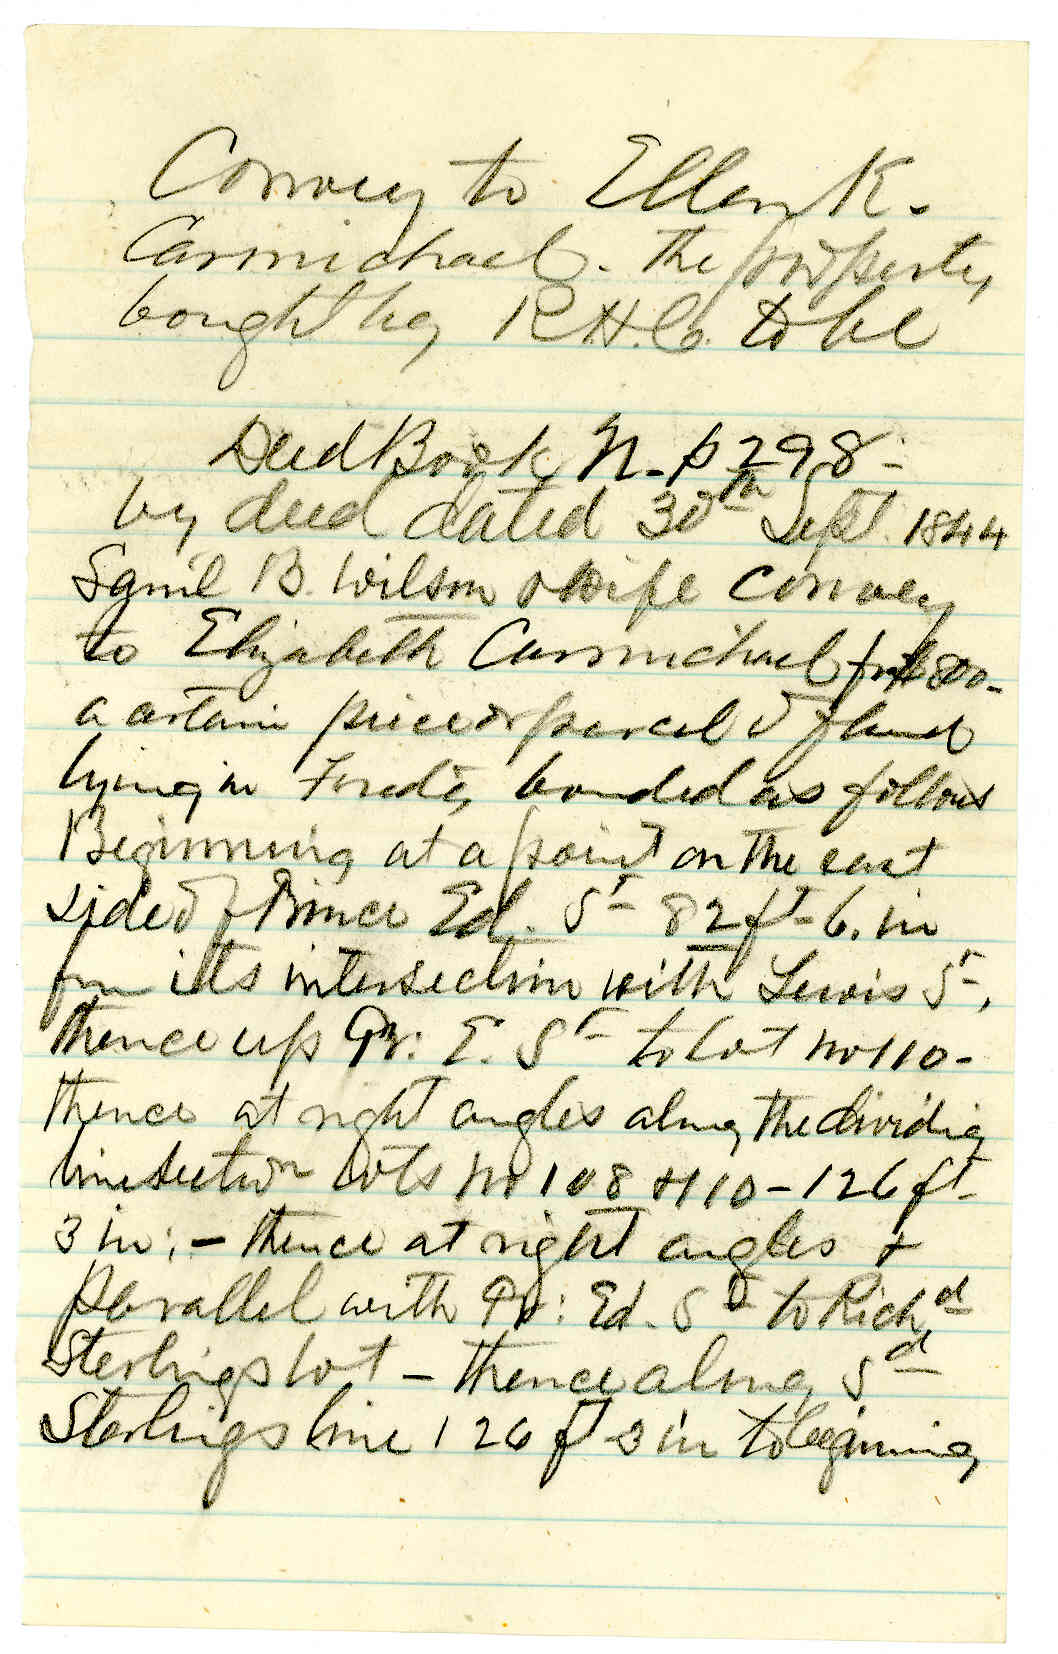 Convey to Ellen K.
Carmichael. the property
bought by R.H.C. to be
Deed Book N. p 298-
by deed dated 30th Sept. 1844
Saml B. Wilson & wife convey
to Elizabeth Carmichael for $800-
a certain piece or parcel of land
lying in Freds'g bounded as follows
Beginning at a point on the east
side of Prince Ed. St 82 ft - 6. in
from its intersection with Lewis St,
thence up Pr: E. St to lot no 110-
thence at right angles along the dividing
line between lots no 108 & 110 - 126 ft.
3 in: - thence at right angles &
parallel with Pr: Ed. St to Richd
Sterlings lot - thence along sd
Sterlings line 126 ft 3 in to beginning